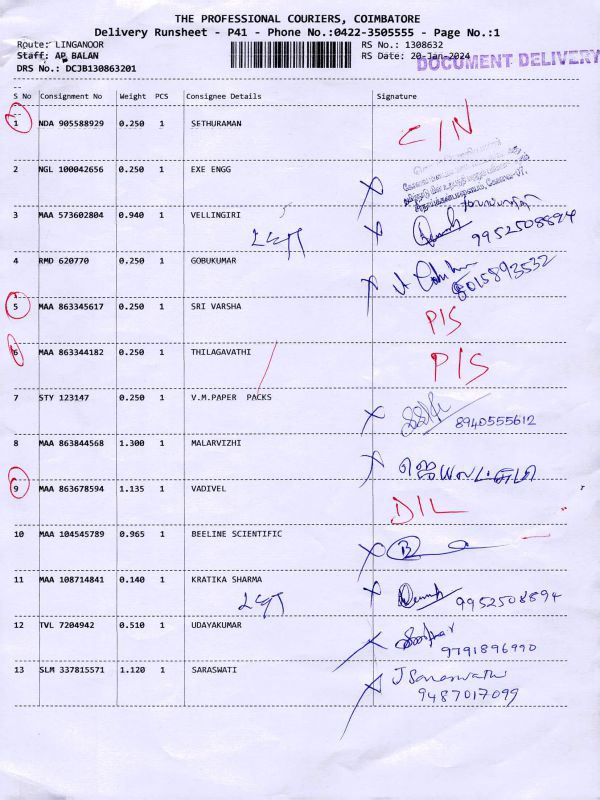 THE PROFESSIONAL COURIERS, COIMBATORE
Delivery Runsheet - P41 - Phone No.:0422-3505555 - Page No.:1
Route: LINGANOOR RS No.: 1308632
Staff: AP BALAN RS Date: 20-Jan-2024 DOCUMENT DELIVERY
DRS No.: DCJB130863201
S No Consignment No Weight PCS Consignee Details Signature
1 NDA 905588929 0.250 1 SETHURAMAN C/N
2 NGL 100042656 0.250 1 EXE ENGG
3 MAA 573602804 0.940 1 VELLINGIRI 9952508894
4 RMD 620770 0.250 1 GOBUKUMAR 8015893532
5 MAA 863345617 0.250 1 SRI VARSHA P/S
6 MAA 863344182 0.250 1 THILAGAVATHI P/S
7 STY 123147 0.250 1 V.M.PAPER PACKS 8940555612
8 MAA 863844568 1.300 1 MALARVIZHI
9 MAA 863678594 1.135 1 VADIVEL D/L
10 MAA 104545789 0.965 1 BEELINE SCIENTIFIC
11 MAA 108714841 0.140 1 KRATIKA SHARMA 9952508894
12 TVL 7204942 0.510 1 UDAYAKUMAR 9791896990
13 SLM 337815571 1.120 1 SARASWATI J Saraswathi
9487017099